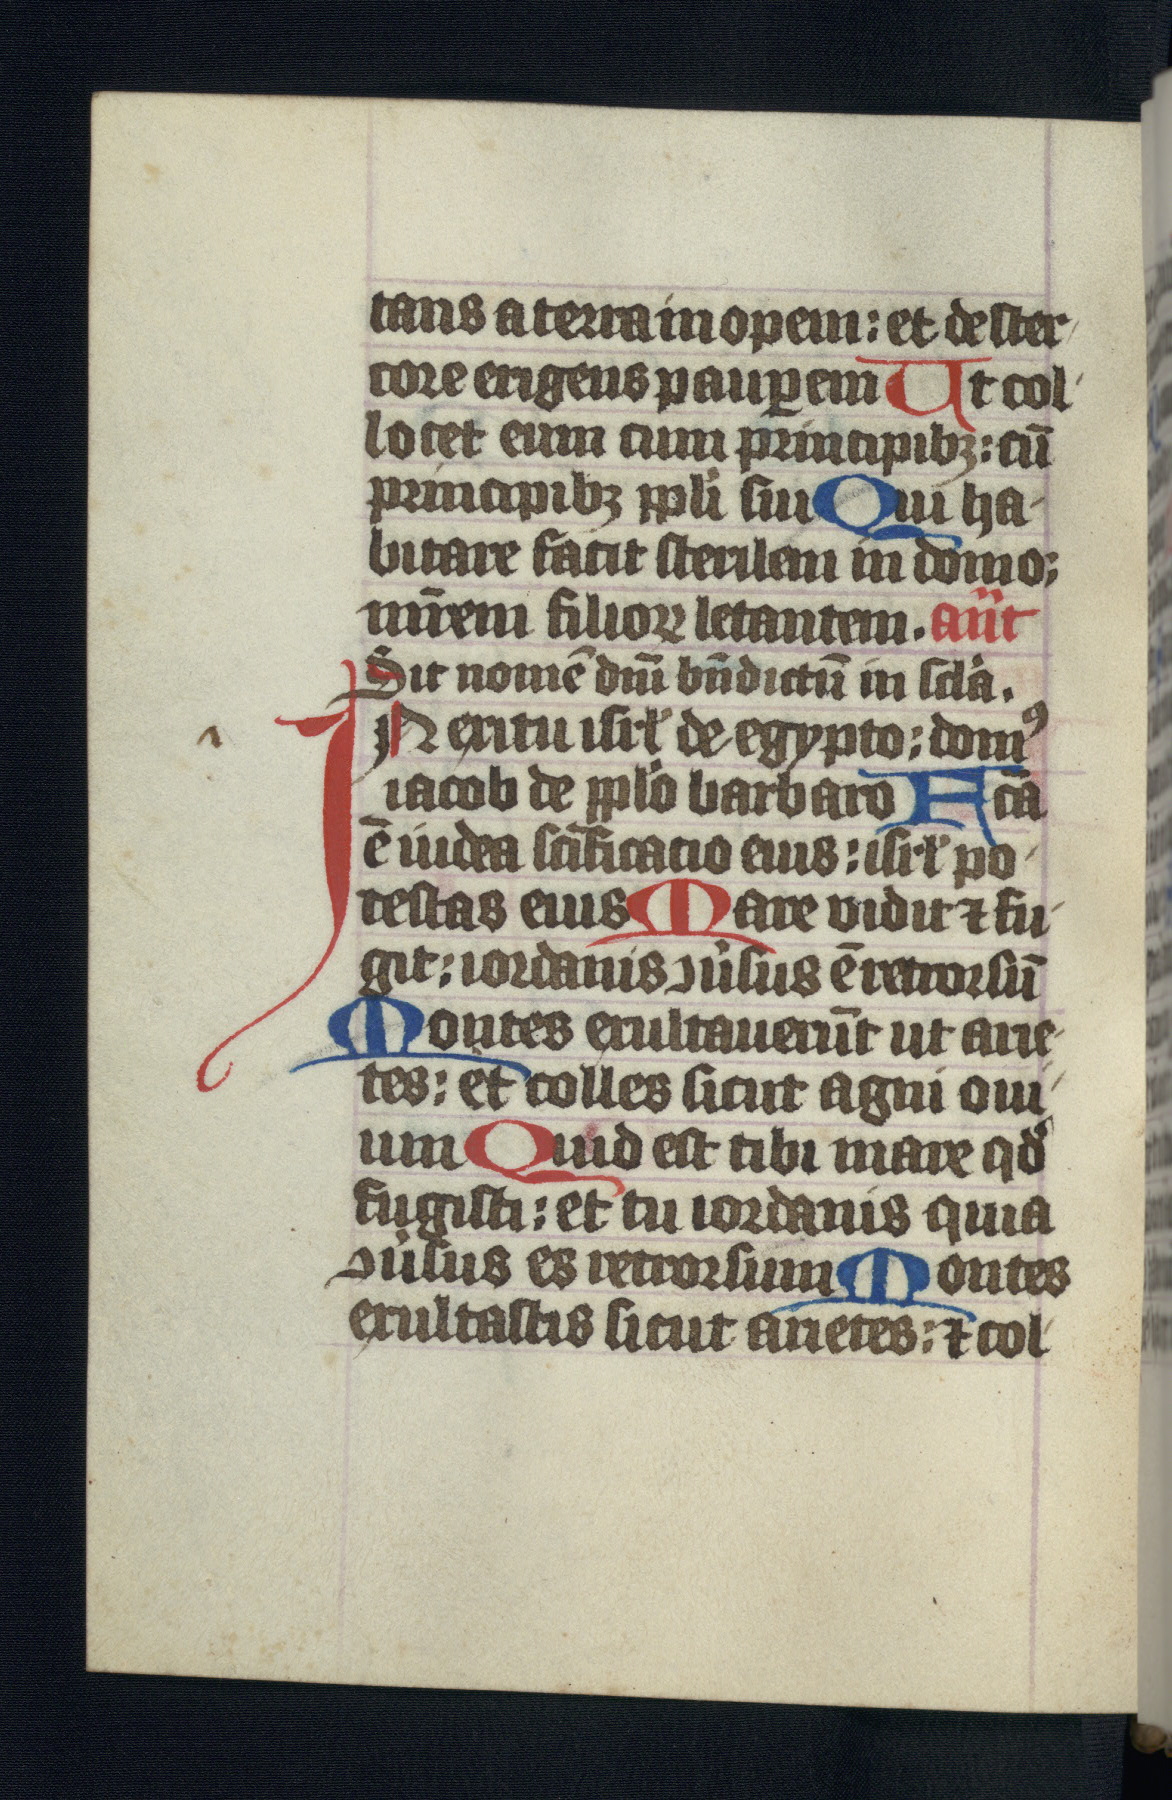 tans a terra inopem: et de ster-
core erigens pauꝑem Ut col-
locet eum cum principibꝫ: cū
principibꝫ ppli sui Qui ha-
bitare facit sterilem in domo:
mr̄em filioꝝ letantem. an̄t
Sit nomē dnī bn̄dictū in scl̄a.
IN exitu isrl̄ de egypto: domꝰ
iacob de ppl̄o barbaro Fcā
ē iudea scīficatio eius: isrl̄ po-
testas eius Mare vidit ⁊ fu-
git: iordanis ↄu̾sus ē retrorsū
Montes exultauerūt ut arie-
tes: et colles sicut agni oui-
um Quid est tibi mare qd̾
fugisti: et tu iordanis quia
ↄu̾sus es retrorsum Montes
exultastis sicut arietes: ⁊ col-